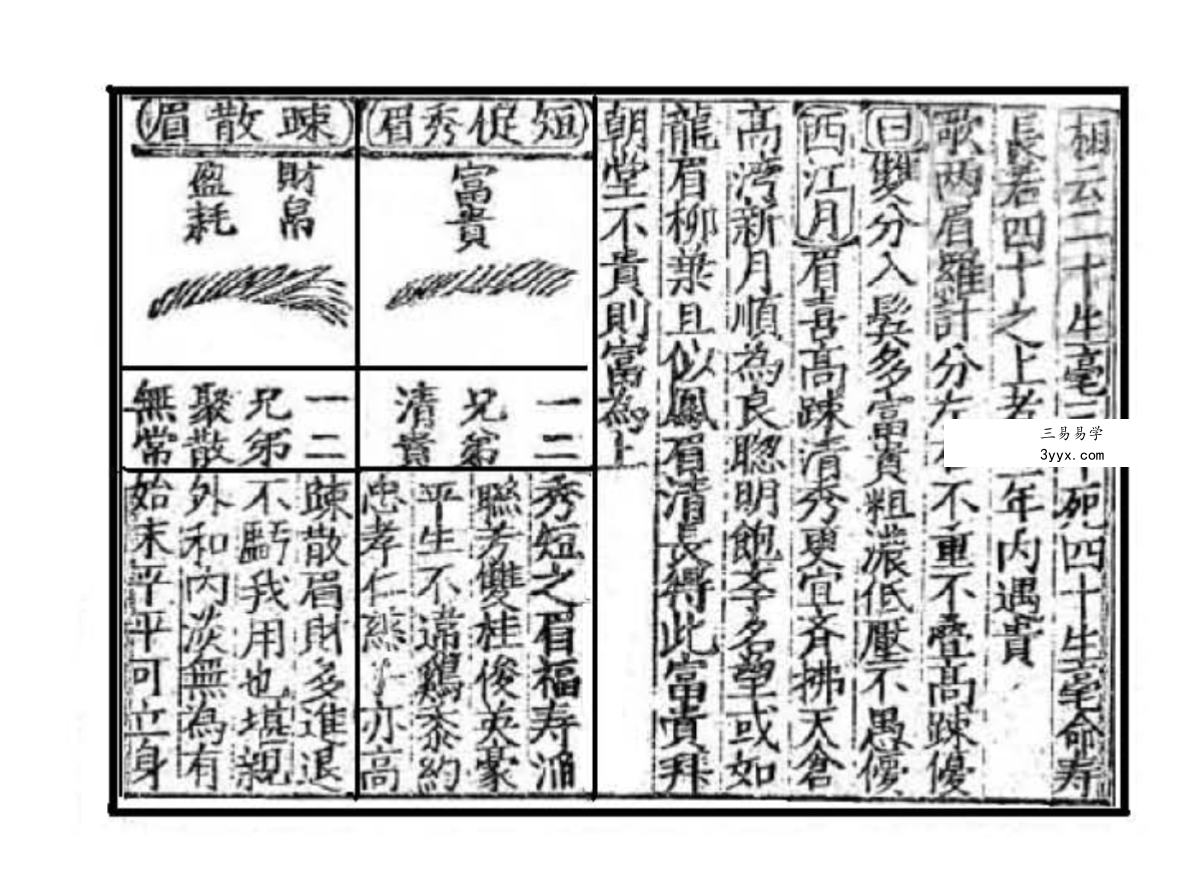 相云二十生毫三十死四十生毫命寿
長若四十之上者年内遇貴
歌两眉羅計分左不重不疊髙踈優
曰雙分入鬂多富貴粗濃低壓不愚儍
西江月眉喜髙踈清秀更宜斉拂天倉
髙湾新月順為良聦明飽孝名望或如
龍眉柳葉且似鳳眉清長得此富貴拜
朝堂不貴則富為上
短促秀眉
富貴
一二
兄弟
清貴
秀短之眉福寿
聮芳雙桂俊英豪
平生不違鷄黍約
忠孝仁亦高
踈散眉
財帛
盈耗
一二
兄弟
聚散
無常
踈散眉財多進退
不虧我用也堪親
外和内淡無為有
始末平平可立身
三易易学
3yyx.com